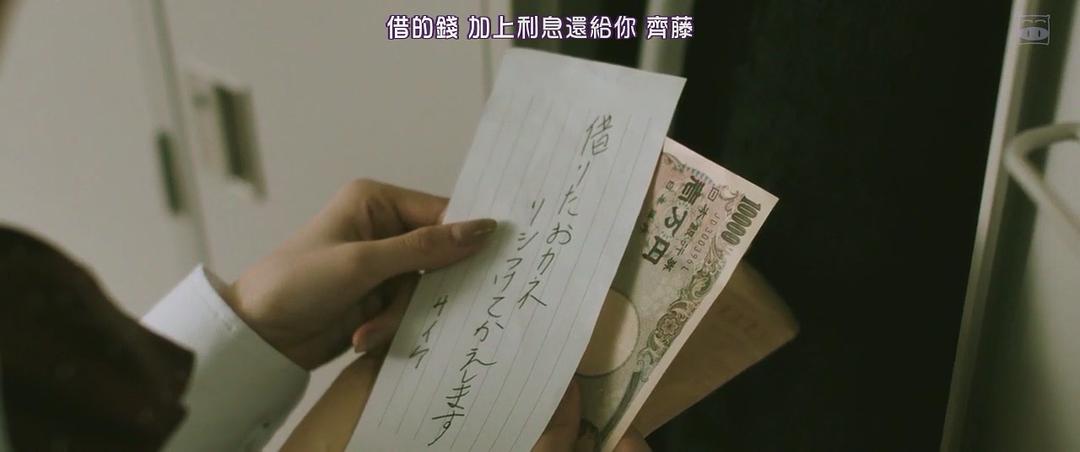 借的錢 加上利息還給你 齊藤
借りたおカネ
リシつけてかえします
サイケ
10000
日本銀行券
壱万円
日本銀行